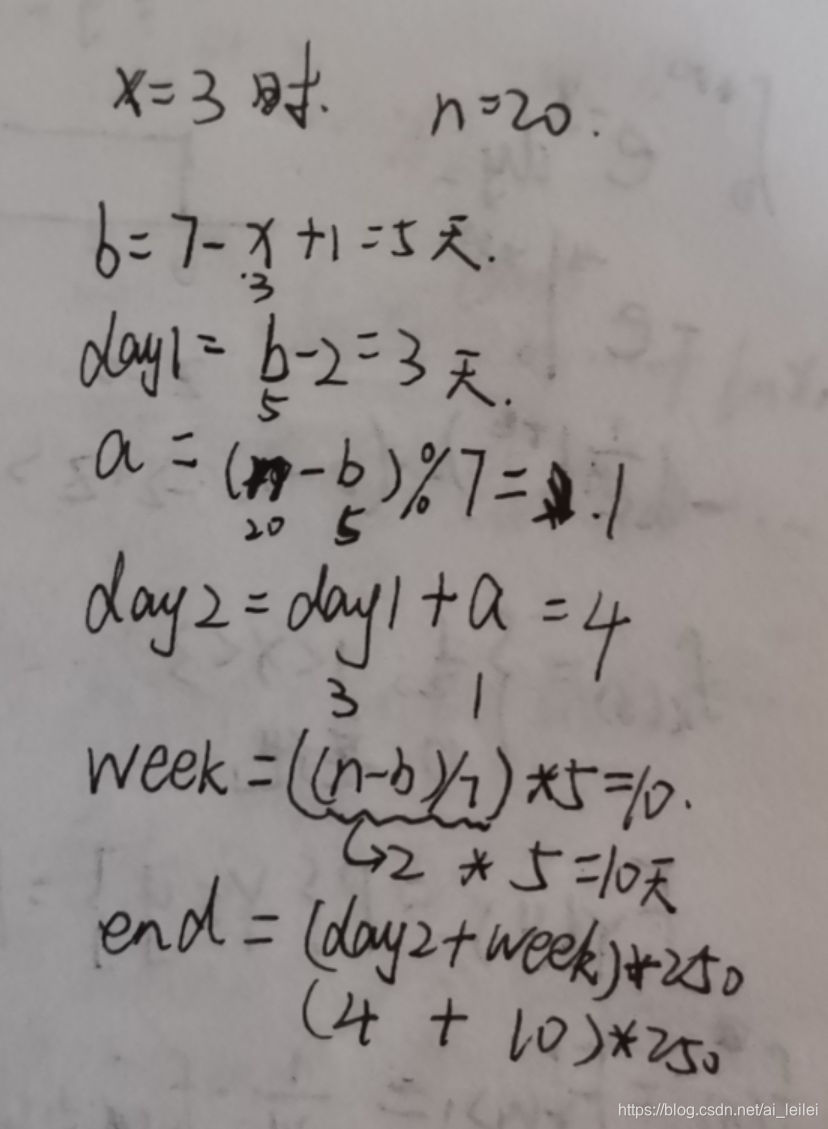 x=3时. n=20.
b=7-x+1=5天.
3
day1=b-2=3天.
5
a=(n-b)%7=.1
20 5
day2=day1+a=4
3 1
week=((n-b)/7)*5=10.
↳2*5=10天
end=(day2+week)*250
(4+10)*250
https://blog.csdn.net/ai_leilei